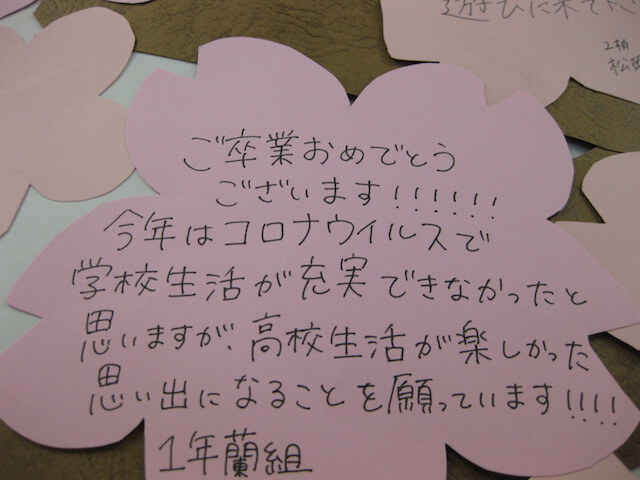 遊びに来て下さ
2柏
松岡
ご卒業おめでとう
ございます!!!!!!
今年はコロナウイルスで
学校生活が充実できなかったと
思いますが、高校生活が楽しかった
思い出になることを願っています!!!!
1年蘭組